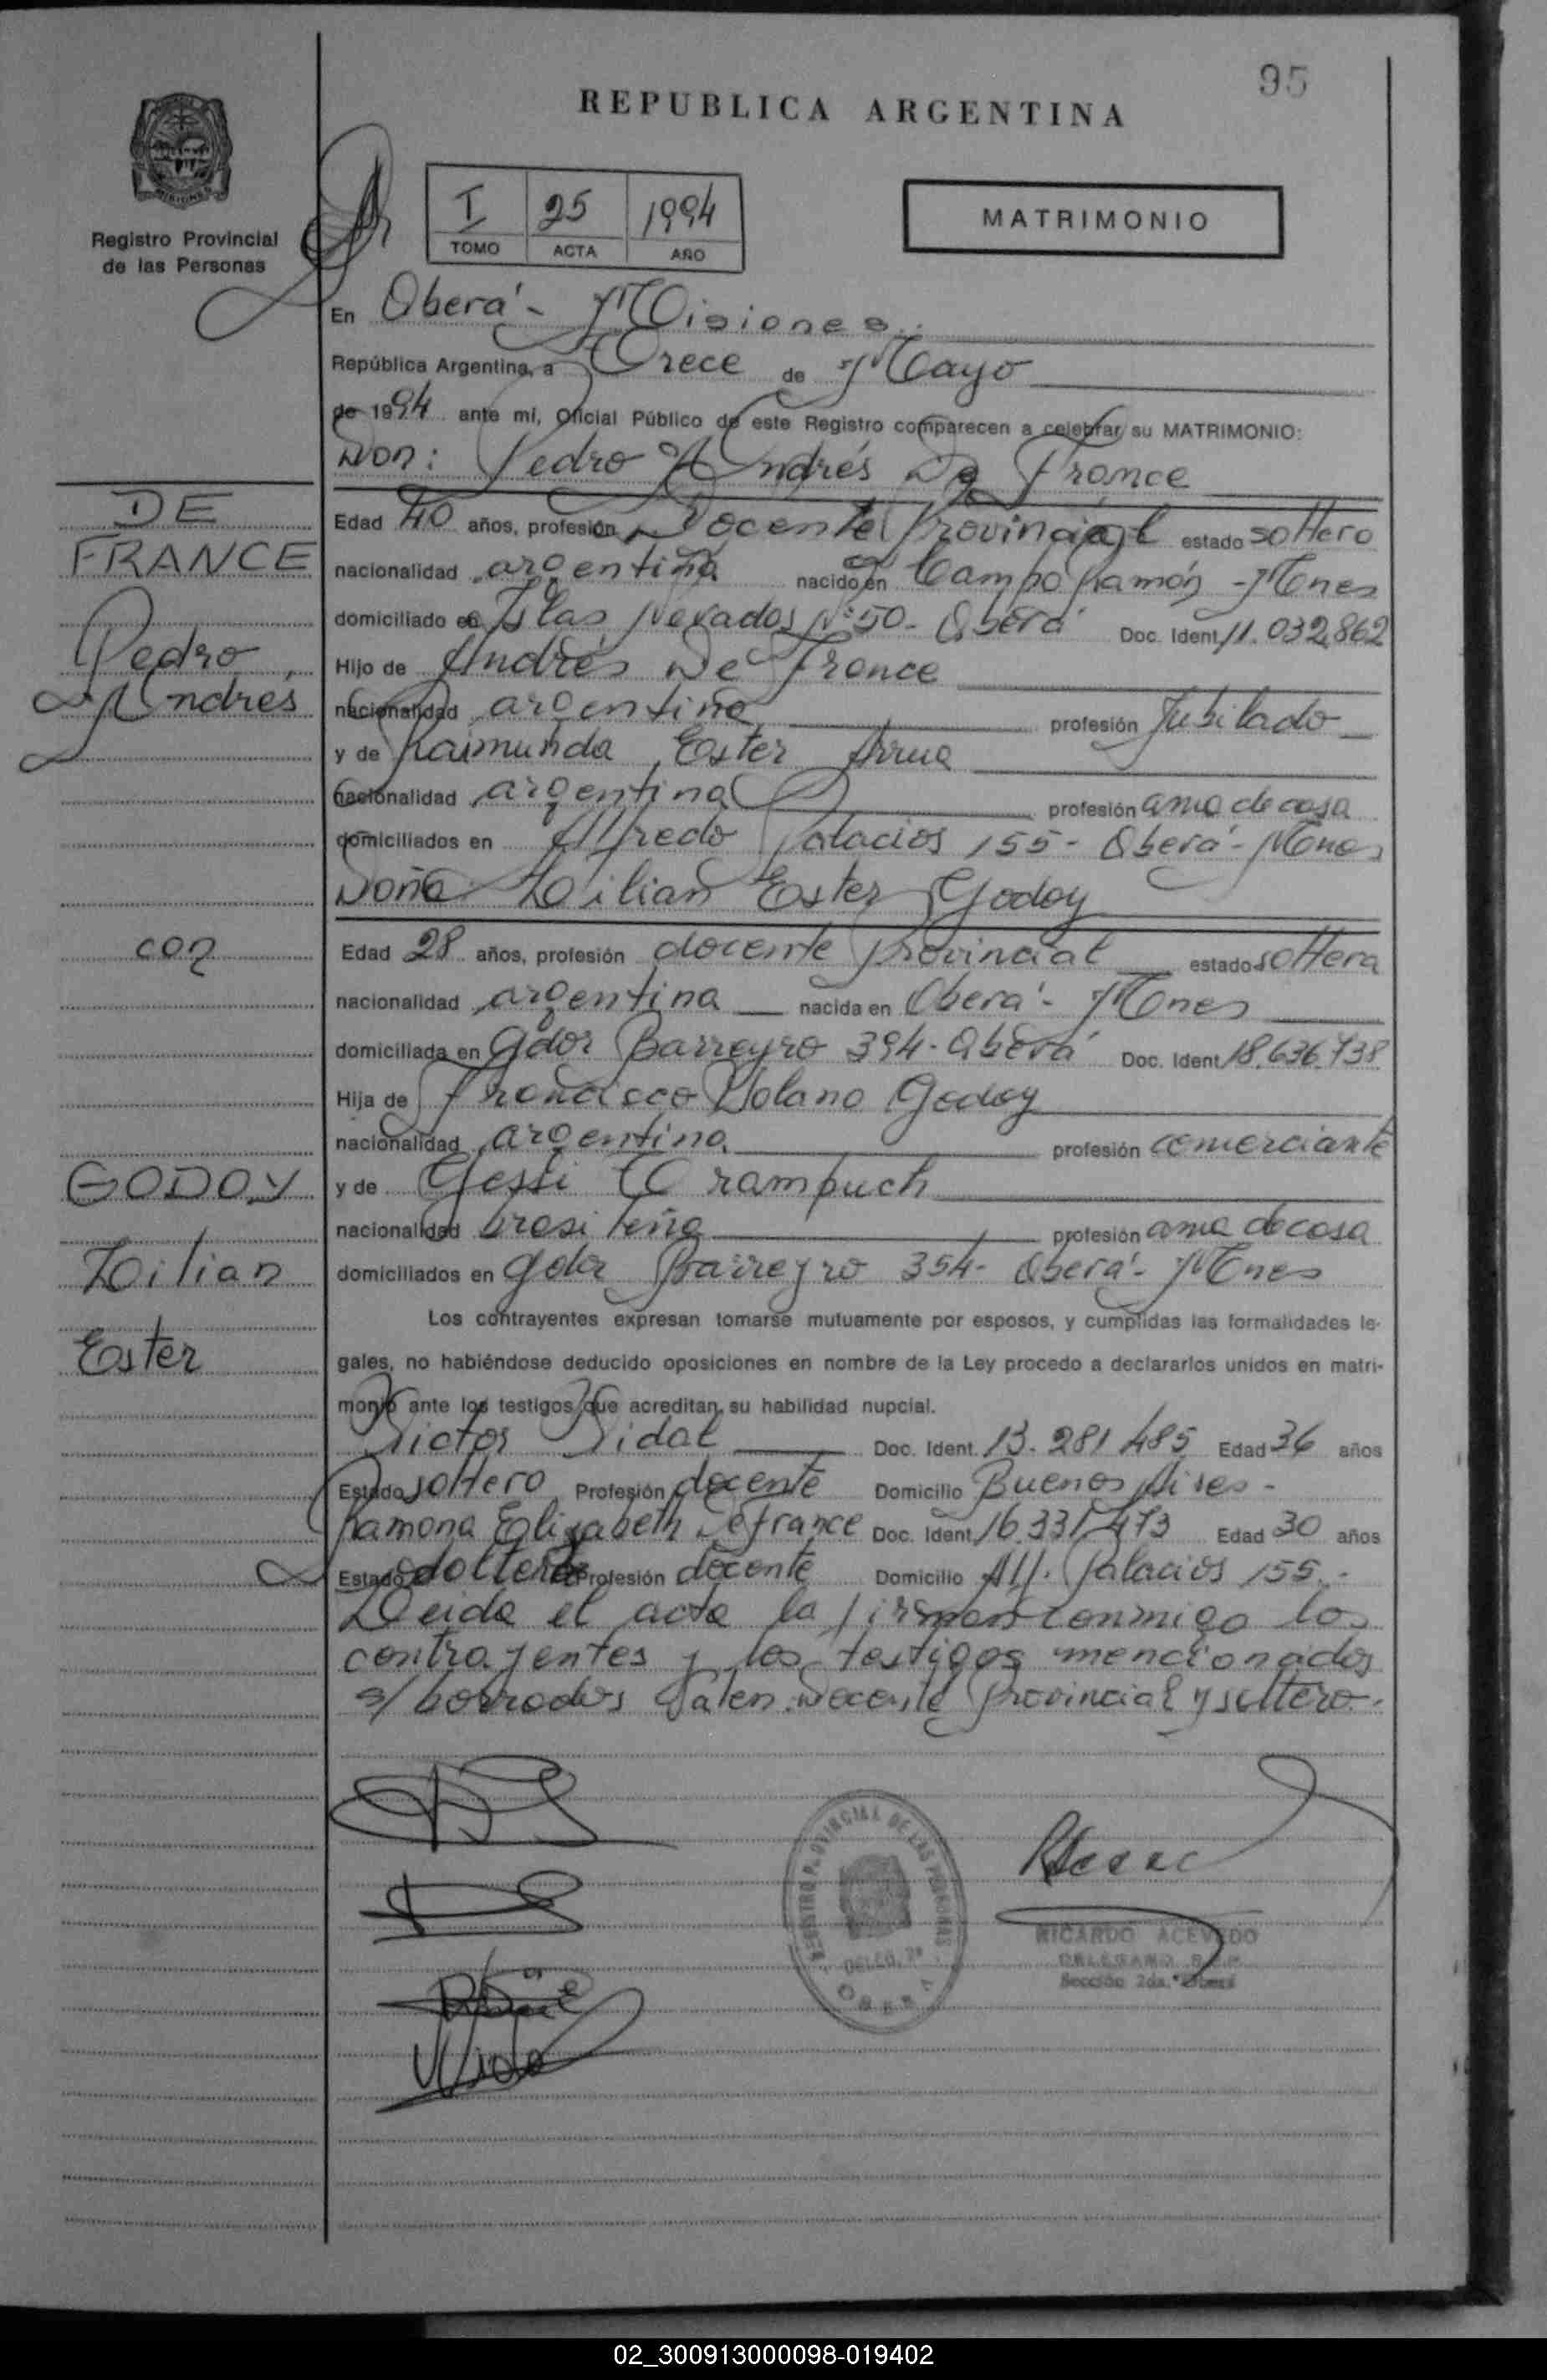 95
REPUBLICA ARGENTINA
Registro Provincial
de las Personas
I 25 1994
TOMO ACTA AÑO
MATRIMONIO
En Oberá - Misiones.
República Argentina, a Trece de Mayo
de 1994 ante mi, Oficial Público de este Registro comparecen a celebrar su MATRIMONIO:
Don: Pedro Andrés De France
DE
FRANCE
Pedro
Andrés
Edad 40 años, profesión Docente Provincial estado soltero
nacionalidad argentina nacido en Campo Ramón - Mnes
domiciliado en Islas Nevados Nº 50 - Oberá Doc. Ident. 11.032.862
Hijo de Andrés De France
nacionalidad argentina profesión Jubilado
y de Raimunda Ester Arrua
nacionalidad argentina profesión ama de casa
domiciliados en Alfredo Palacios 155 - Oberá - Mnes
Doña Lilian Ester Godoy
con
GODOY
Lilian
Ester
Edad 28 años, profesión docente provincial estado soltera
nacionalidad argentina nacida en Oberá - Mnes
domiciliada en Gdor Barreyro 394 - Oberá Doc. Ident. 18.636.738
Hija de Francisco Solano Godoy
nacionalidad argentina profesión comerciante
y de Gessi Trampuch
nacionalidad brasileña profesión ama de casa
domiciliados en Gdor Barreyro 354 - Oberá - Mnes
Los contrayentes expresan tomarse mutuamente por esposos, y cumplidas las formalidades le-
gales, no habiéndose deducido oposiciones en nombre de la Ley procedo a declararlos unidos en matri-
monio ante los testigos que acreditan su habilidad nupcial.
Victor Vidal Doc. Ident. 13.281.485 Edad 36 años
Estado soltero Profesión docente Domicilio Buenos Aires -
Ramona Elizabeth Defrance Doc. Ident. 16.331.473 Edad 30 años
Estado soltera Profesión docente Domicilio Alf. Palacios 155.-
Leida el acta la firman conmigo los
contrayentes y los testigos mencionados
s/ borrados Valen: Docente Provincial y soltero.
REGISTRO PROVINCIAL DE LAS PERSONAS
DELEG. 2ª
OBERA
RICARDO ACEVEDO
Sección 2da. Oberá
02_300913000098-019402